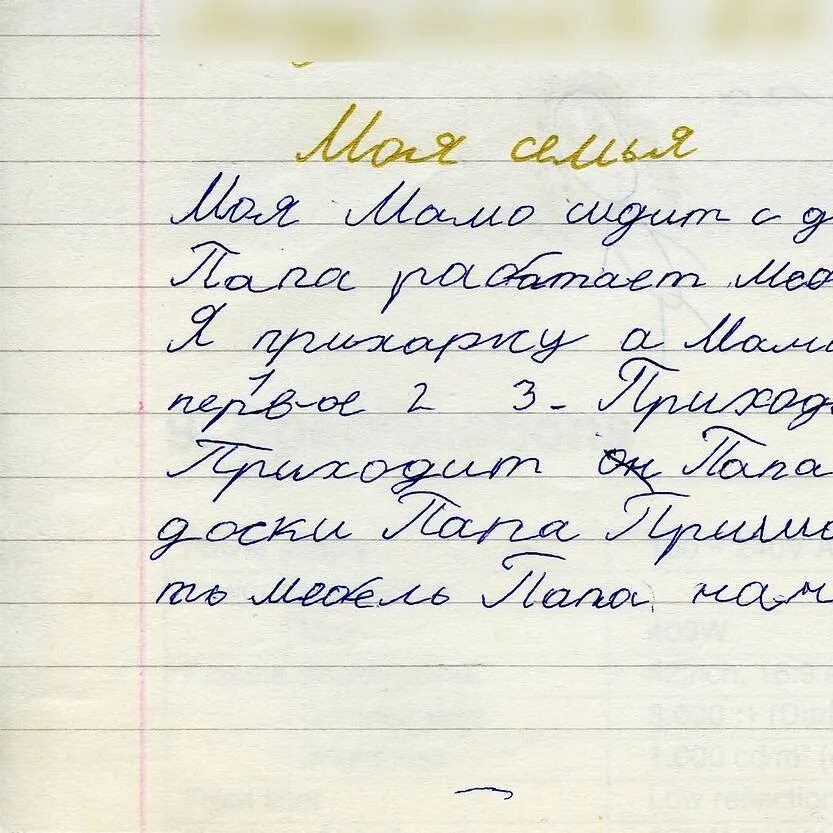 Моя семья
Моя Мамо сидит с д
Папа работает меб
Я прихаржу а Мам
первое 1 2 3- Приход
Приходит он Папа
доски Папа Приш
ть мебель Папа нач